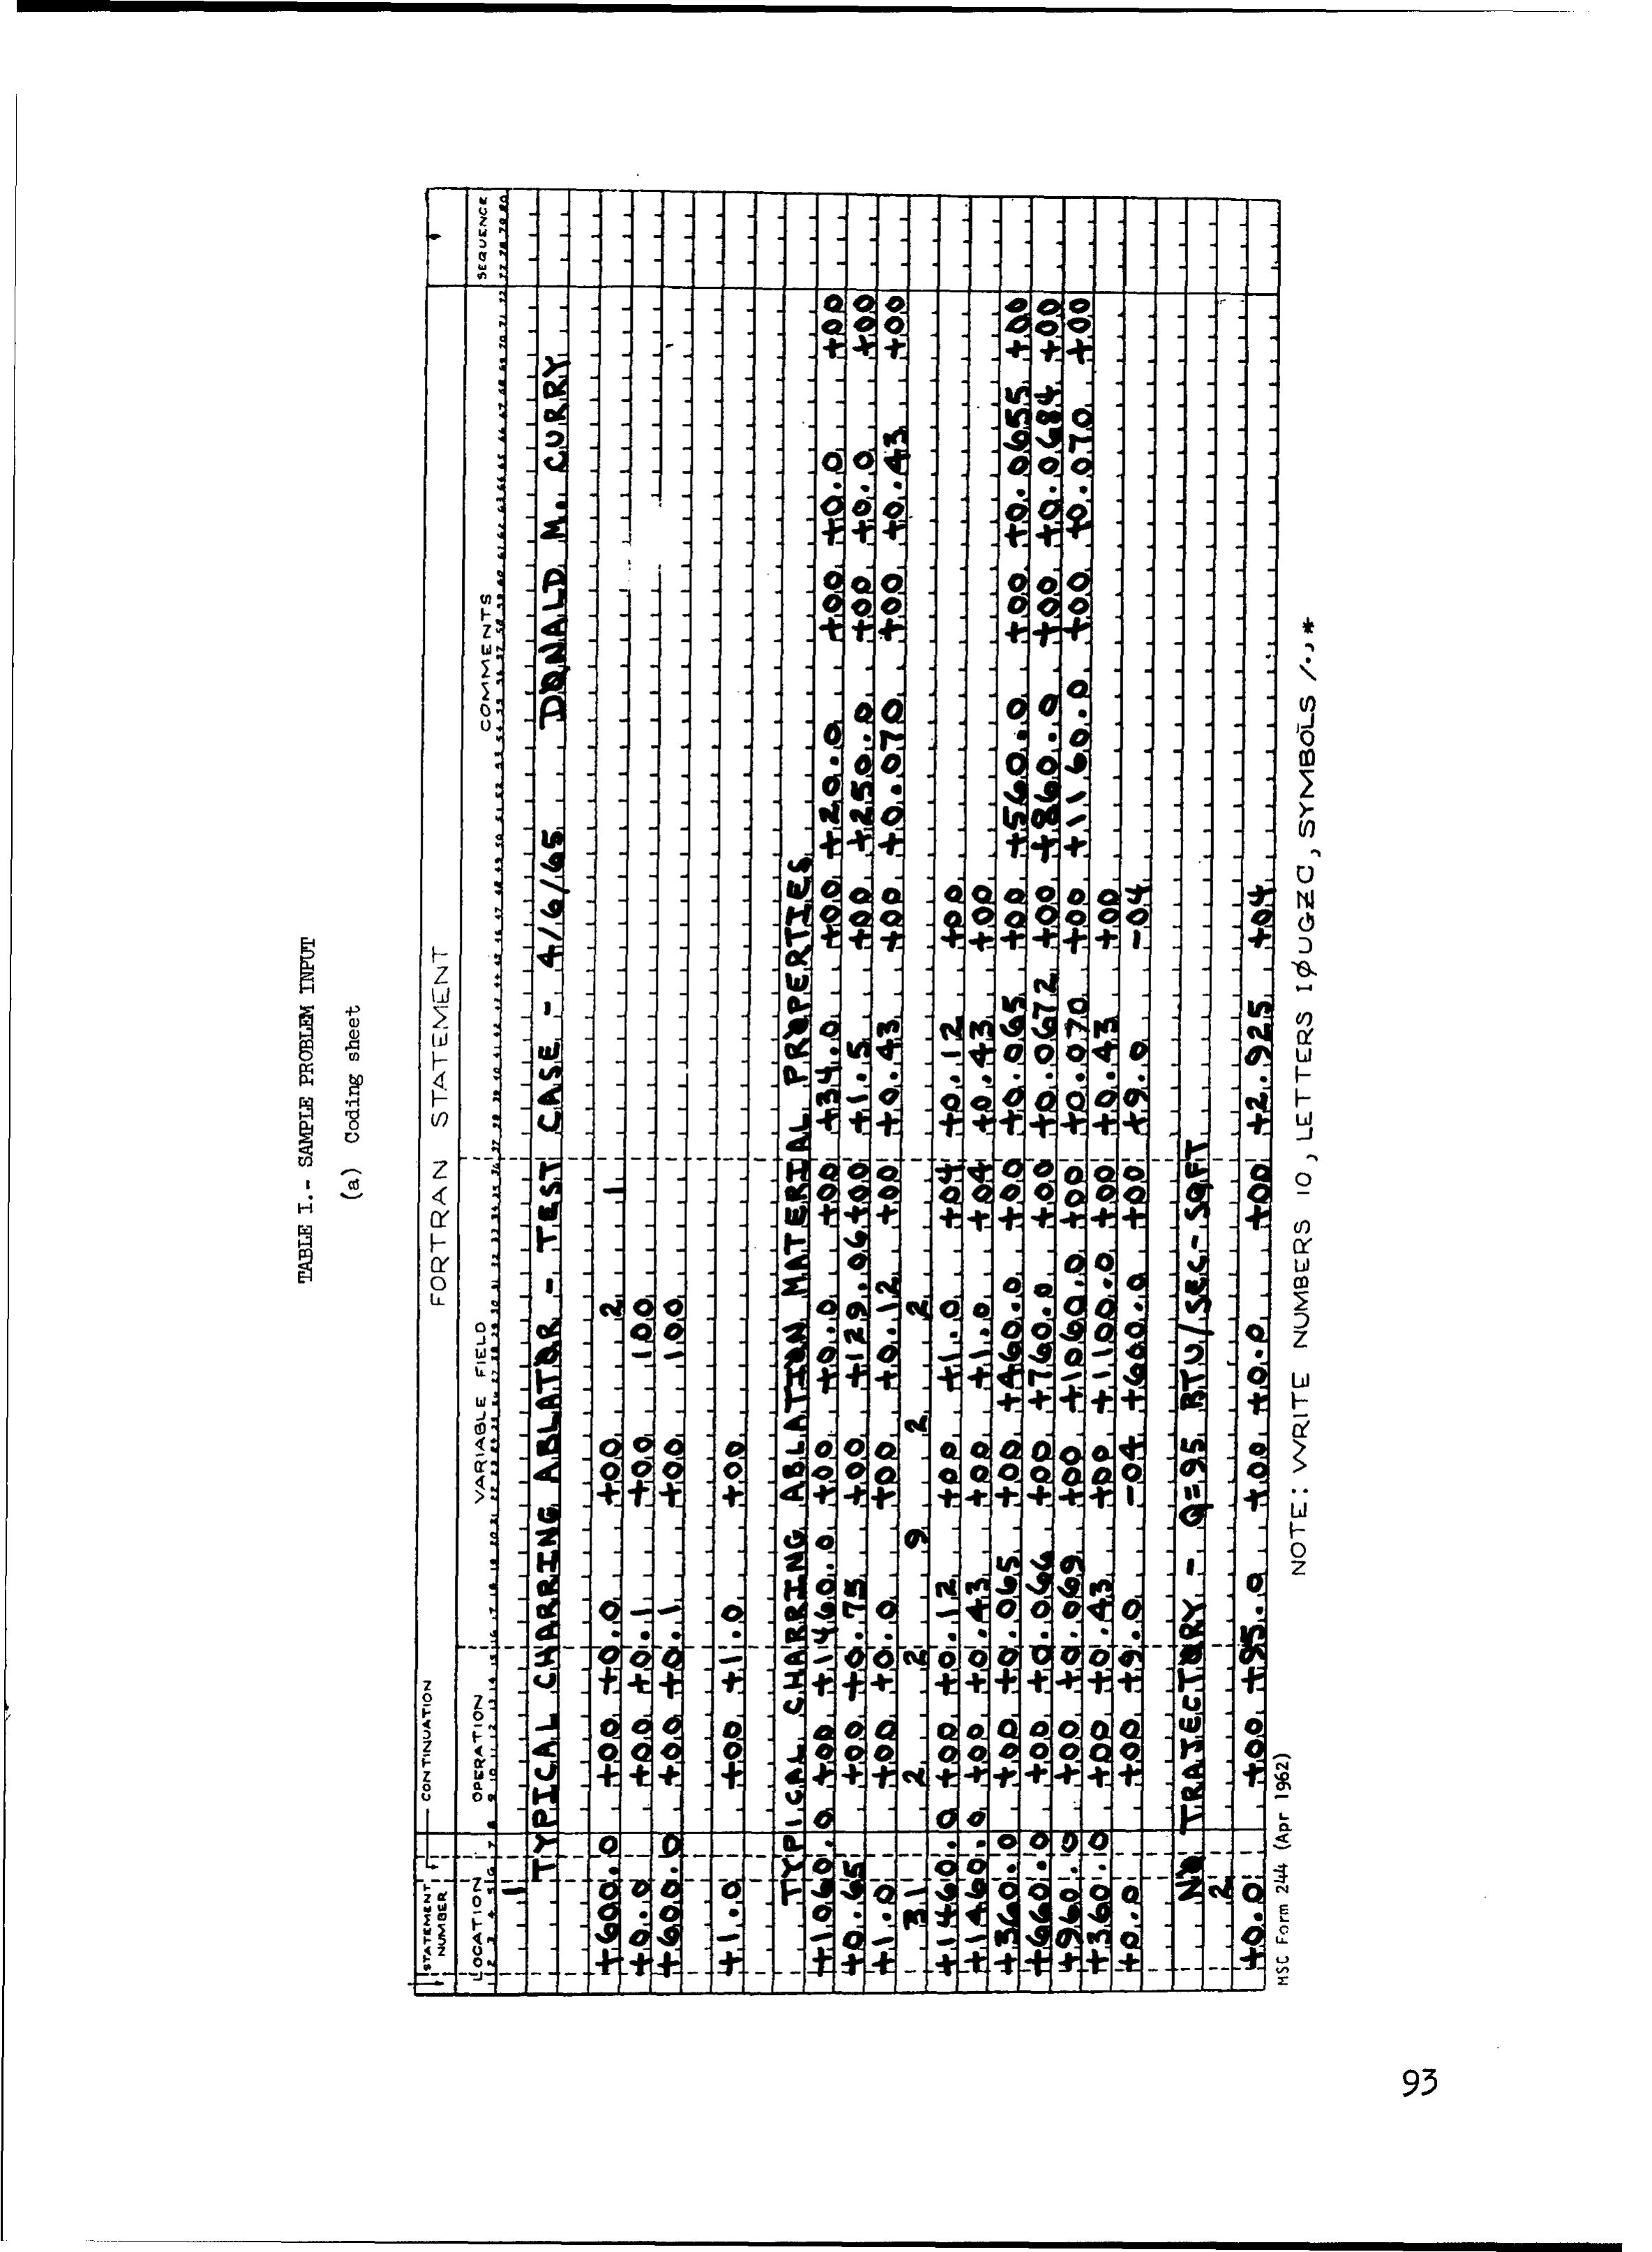 TABLE I.- SAMPLE PROBLEM INPUT
(a) Coding sheet
STATEMENT NUMBER CONTINUATION FORTRAN STATEMENT
LOCATION OPERATION VARIABLE FIELD COMMENTS SEQUENCE
1
TYPICAL CHARRING ABLATØR - TEST CASE - 4/6/65 DØNALD M. CURRY
+600.0 +00 +0.0 +00 2 1
+0.0 +00 +0.1 +00 100
+600.0 +00 +0.1 +00 100
+1.0 +00 +1.0 +00
TYPICAL CHARRING ABLATIØN MATERIAL PROPERTIES
+1060.0 +00 +1460.0 +00 +0.0 +00 +34.0 +00 +20.0 +00 +0.0 +00
+0.65 +00 +0.75 +00 +129.06+00 +1.5 +00 +250.0 +00 +0.0 +00
+1.0 +00 +0.0 +00 +0.12 +00 +0.43 +00 +0.070 +00 +0.43 +00
31 2 2 9 2 2
+1460.0 +00 +0.12 +00 +1.0 +04 +0.12 +00
+1460.0 +00 +0.43 +00 +1.0 +04 +0.43 +00
+360.0 +00 +0.065 +00 +460.0 +00 +0.065 +00 +560.0 +00 +0.0655 +00
+660.0 +00 +0.066 +00 +760.0 +00 +0.0672 +00 +860.0 +00 +0.0684 +00
+960.0 +00 +0.069 +00 +1060.0 +00 +0.070 +00 +1160.0 +00 +0.070 +00
+360.0 +00 +0.43 +00 +1100.0 +00 +0.43 +00
+0.0 +00 +9.0 -04 +600.0 +00 +9.0 -04
NØ TRAJECTØRY - Q=95 BTU/SEC-SQFT
2
+0.0 +00 +95.0 +00 +0.0 +00 +2.925 +04
MSC Form 244 (Apr 1962)
NOTE: WRITE NUMBERS 10, LETTERS IØUGZC, SYMBOLS /.,*
93